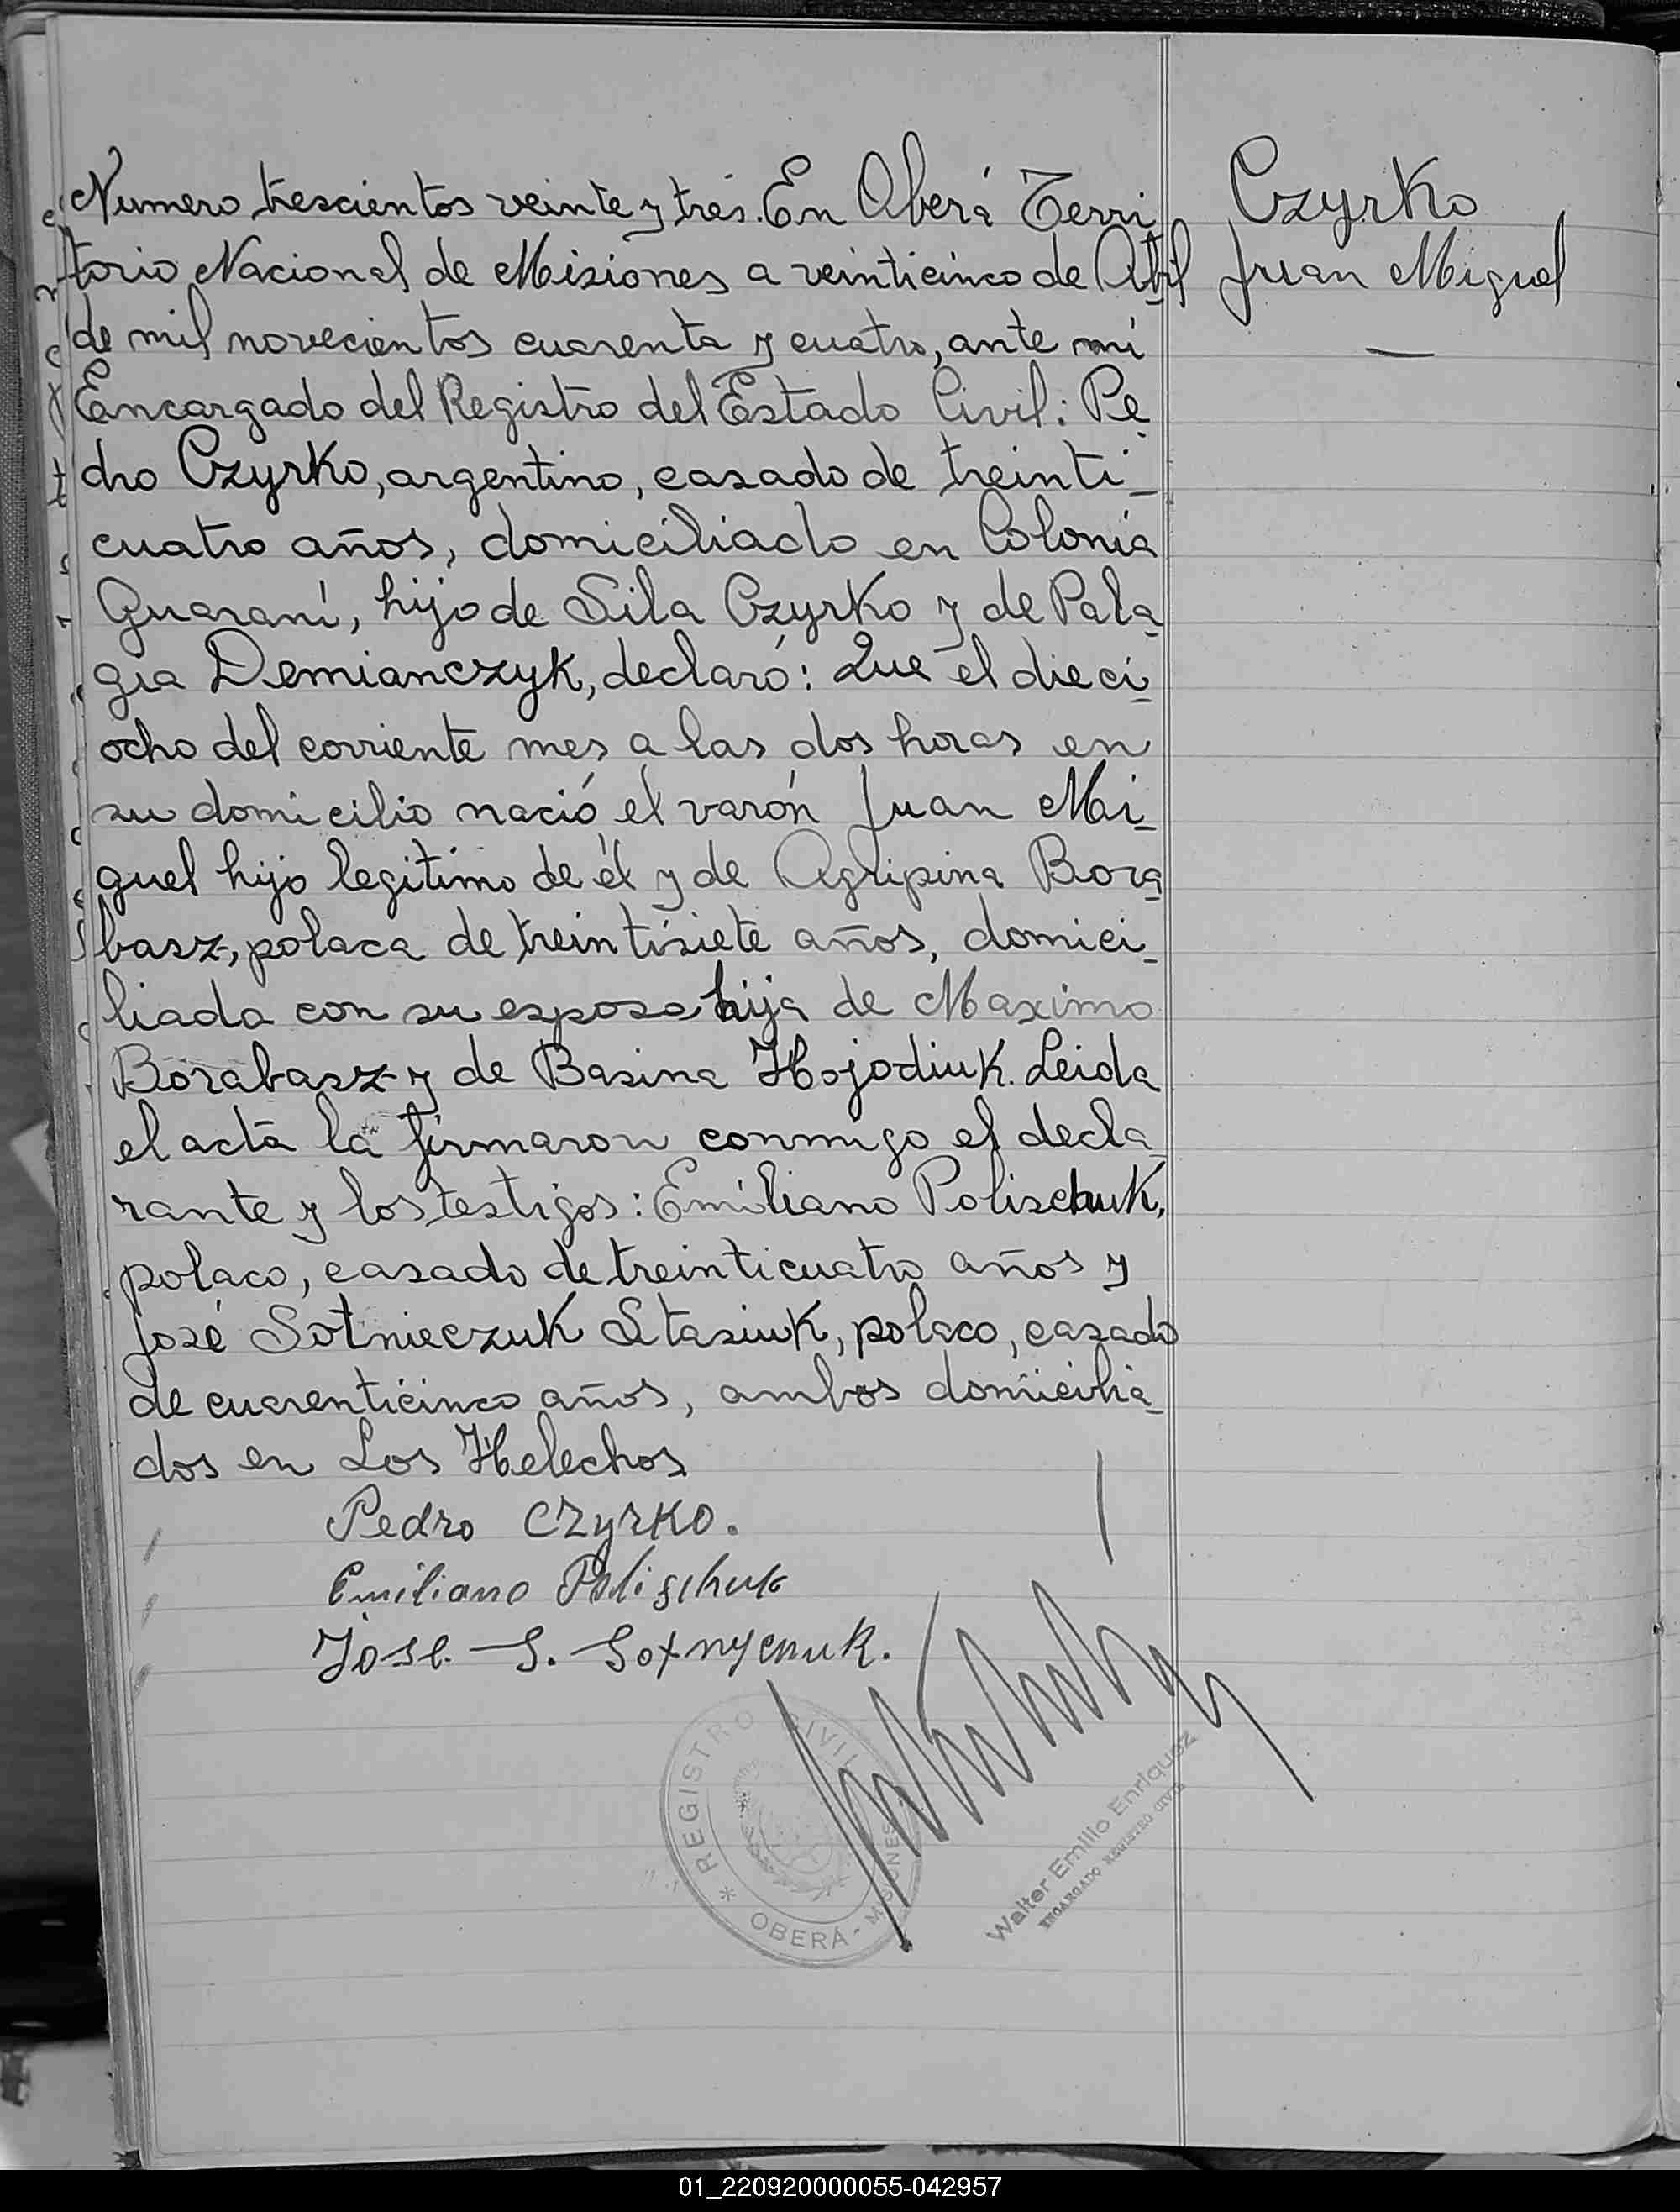 Numero trescientos veinte y tres. En Oberá Terri
torio Nacional de Misiones a veinticinco de Abril
de mil novecientos cuarenta y cuatro, ante mí
Encargado del Registro del Estado Civil: Pe
dro Czyrko, argentino, casado de treinti_
cuatro años, domiciliado en Colonia
Guaraní, hijo de Sila Czyrko y de Pala
gia Demianczyk, declaró: Que el dieci_
ocho del corriente mes a las dos horas en
su domicilio nació el varón Juan Mi_
guel hijo legitimo de él y de Agripina Bora
basz, polaca de treintisiete años, domici_
liada con su esposo hija de Maximo
Borabasz y de Basina Hojodiuk. Leida
el acta la firmaron conmigo el decla_
rante y los testigos: Emiliano Polischuk,
polaco, casado de treinticuatro años y
José Sotnieczuk Stasiuk, polaco, casado
de cuarenticinco años, ambos domicilia_
dos en Los Helechos
Pedro Czyrko.
Emiliano Polischuk
José. S. Sotnyczuk.
Czyrko
Juan Miguel
REGISTRO CIVIL
OBERÁ - MISIONES
Walter Emilio Enriquez
ENCARGADO REGISTRO CIVIL
01_220920000055-042957